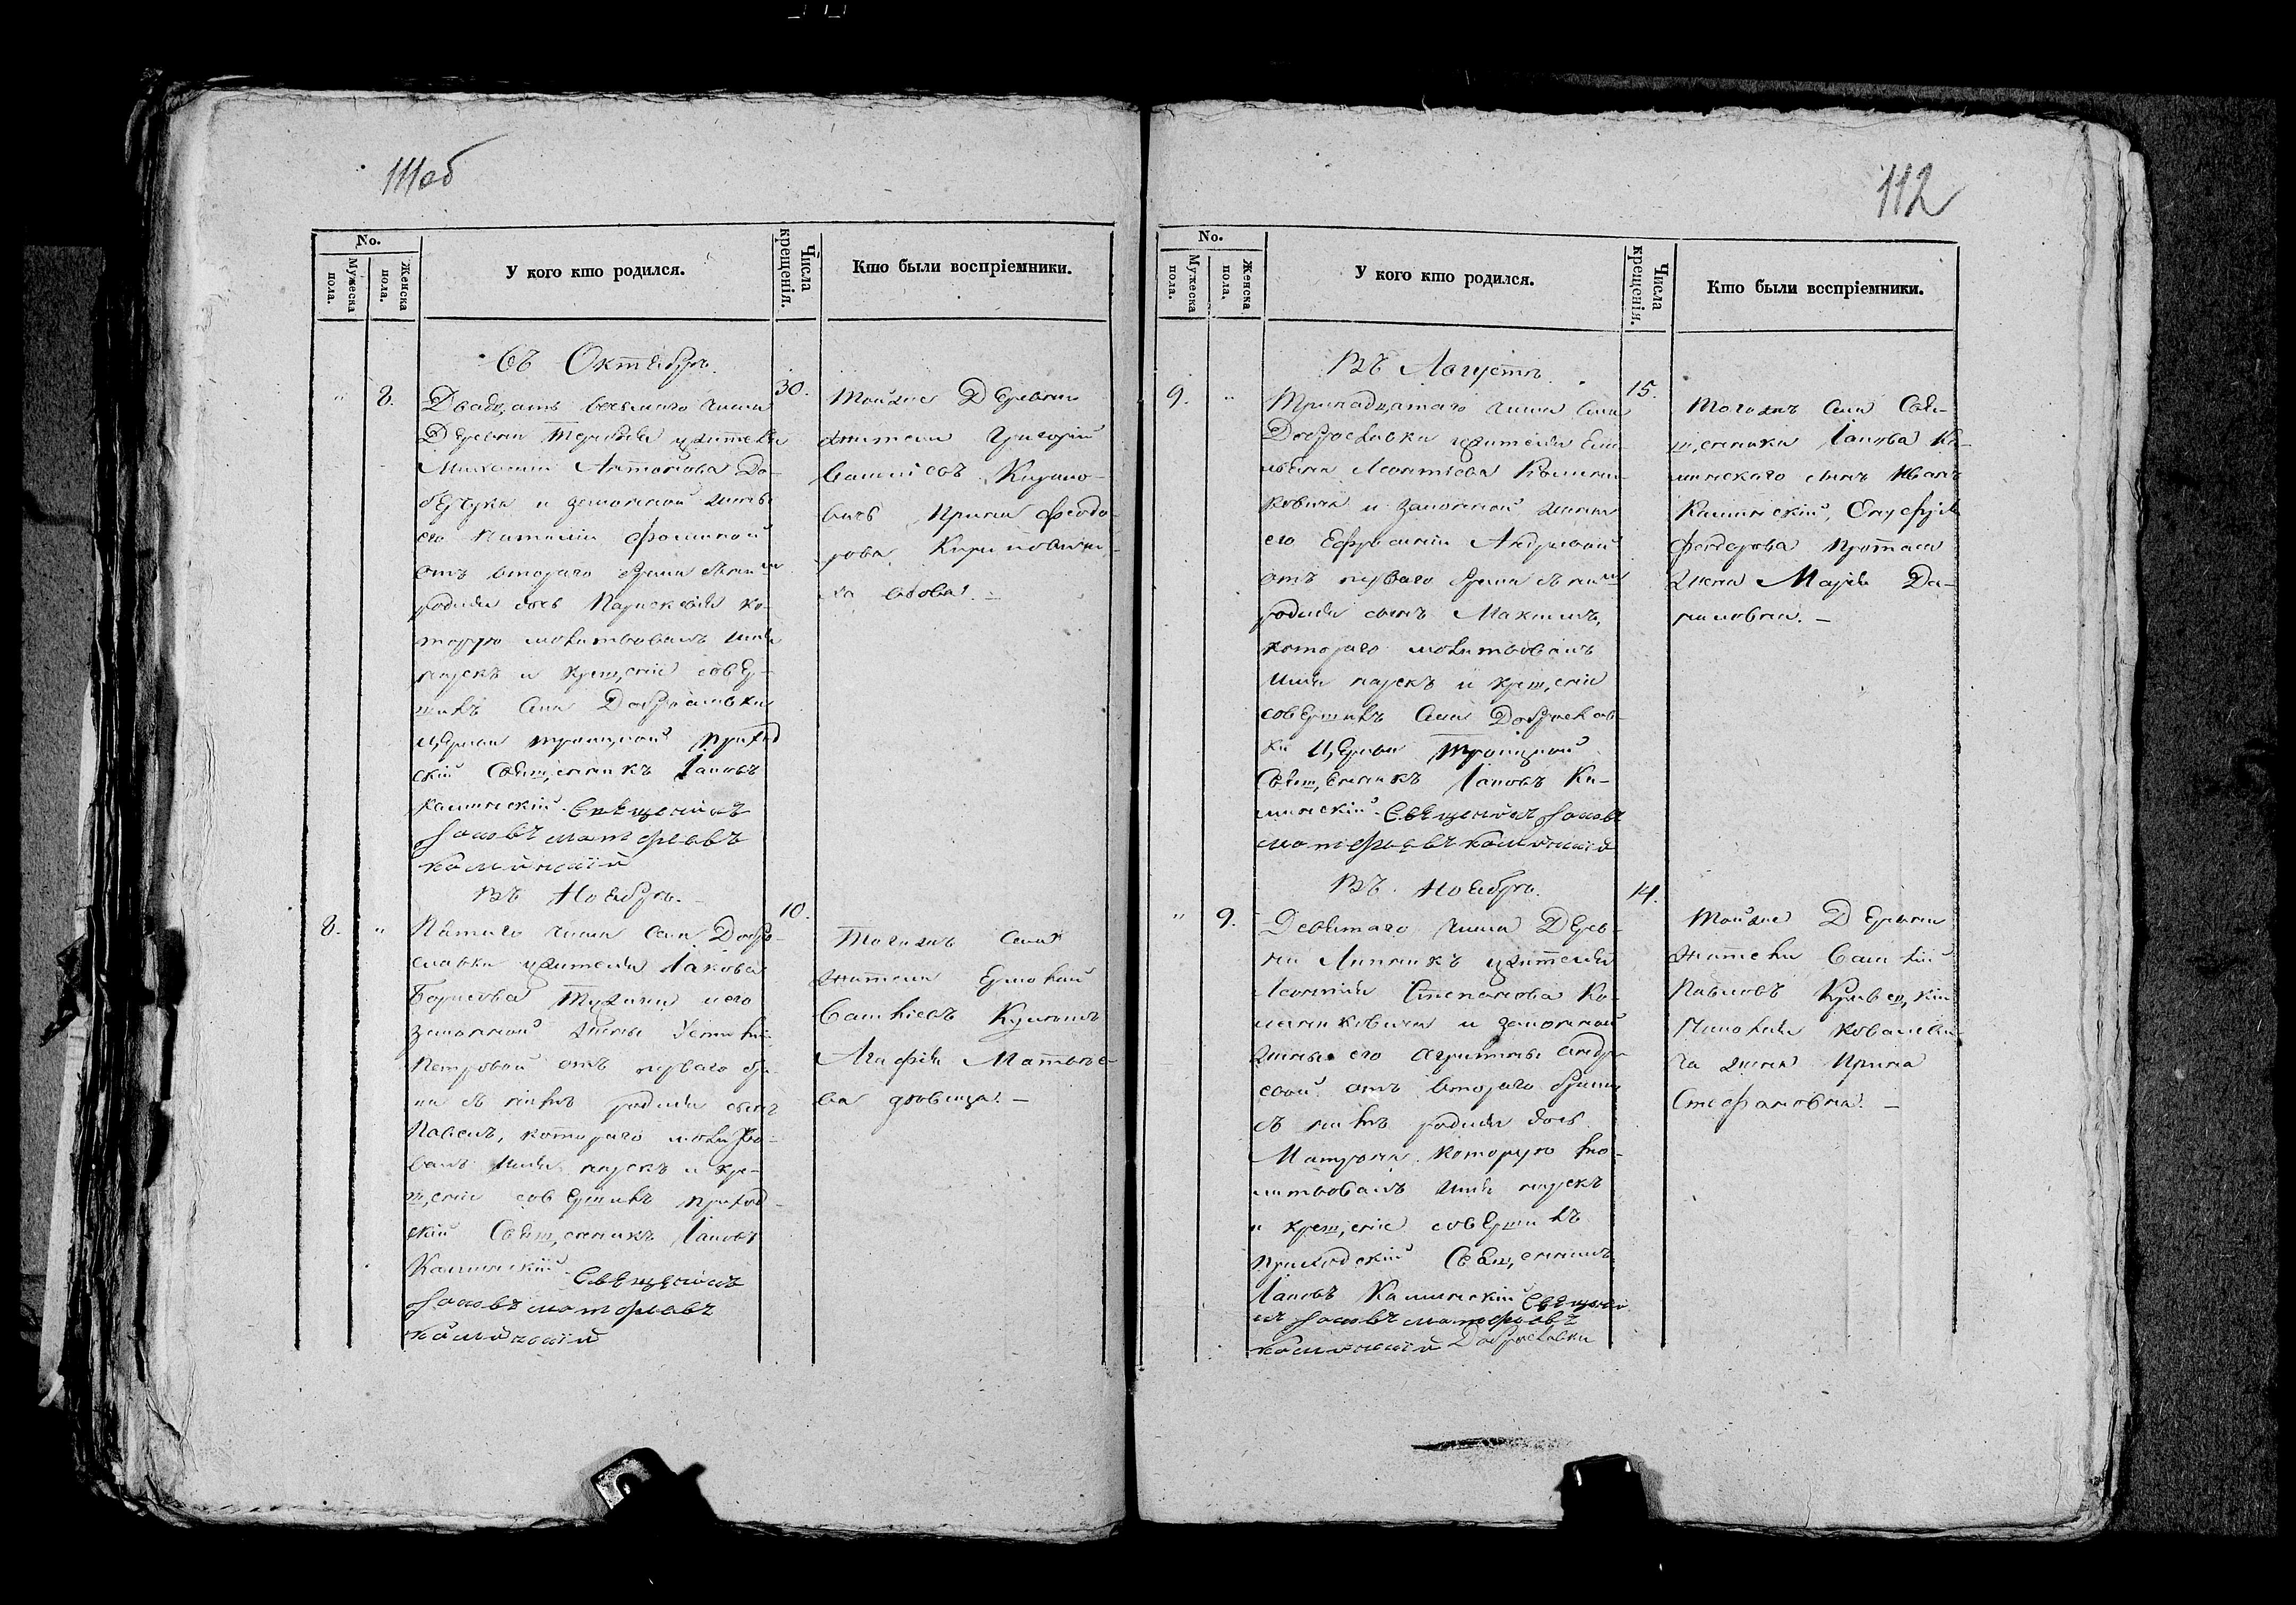 111об
No.
Мужеска пола.
Женска пола.
У кого кто родился.
Числа крещенія.
Кто были воспріемники.
Въ Октябрѣ.
" 8.
Двадцать восьмаго числа
Деревни жителя
Михаила Антонова До-
и законной жены
его Наталіи Фоминой
отъ втораго брака
родила дочь Параскевія ко-
торую молитвовалъ имя
нарекъ и крещеніе совер-
шилъ села Доброславки
церкви Троицкой приход
скій Священникъ Іаковъ
Каминскій. Священикъ
Іаковъ Матфѣевъ
Каминскій
30.
Тойже Деревни
жители Григорій
Кирило-
вичъ Ирина Феодо-
рова
вдова. –
Въ Ноябрѣ. –
8. "
Пятаго числа села Добро-
славки жителя Іакова
Борисова и его
законной жены
Петровой отъ перваго бра-
ка родила сынъ
Павелъ, котораго молитво-
валъ имя нарекъ и кре-
щеніе совершилъ приход-
скій Священникъ Іаковъ
Каминскій. Священикъ
Іаковъ Матфѣевъ
Каминскій
10.
Тогожъ села
жители Ермолай
Агафія Матвѣе-
ва дѣвица. –
112
No.
Мужеска пола.
Женска пола.
У кого кто родился.
Числа крещенія.
Кто были воспріемники.
Въ Августѣ.
9. "
Тринадцатаго числа села
Доброславки жителя Еми-
льяна Леонтіева
и законной жены
его Ефросиніи Андреевой
отъ перваго брака
родила сынъ Максимъ,
котораго молитвовалъ
имя нарекъ и крещеніе
совершилъ села Доброслав-
ки Церкви Троицкой
Священникъ Іаковъ Ка-
минскій. Священикъ Іаковъ
Матфѣевъ Каминскій
15.
Тогожъ села Свя-
щенника Іакова Ка-
минскаго сынъ Иванъ
Каминскій, Онуфрія
Федорова
жена Марія Да-
ниловна. –
Въ Ноябрѣ.
" 9.
Девятаго числа Дерев-
ни Липникъ жителя
Леонтія Степанова Ко-
и законной
жены его Агрипины Андре-
евой отъ втораго брака
родила дочь
Матрона которую мо-
литвовалъ имя нарекъ
и крещеніе совершилъ
приходскій Священникъ
Іаковъ Каминскій Священи
къ Іаковъ Матфѣевъ
Каминскій Доброславки
14.
Тойже Деревни
жители Василій
Павловъ
жена Ирина
Стефановна. –